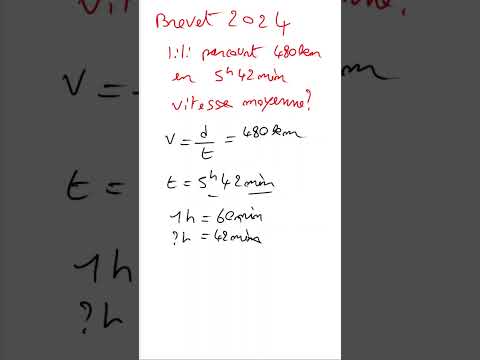 Brevet 2024
Lili parcourt 480 km
en 5h 42 min
vitesse moyenne?
v = d/t = 480 km
t = 5h 42 min
1h = 60 min
?h = 42 min